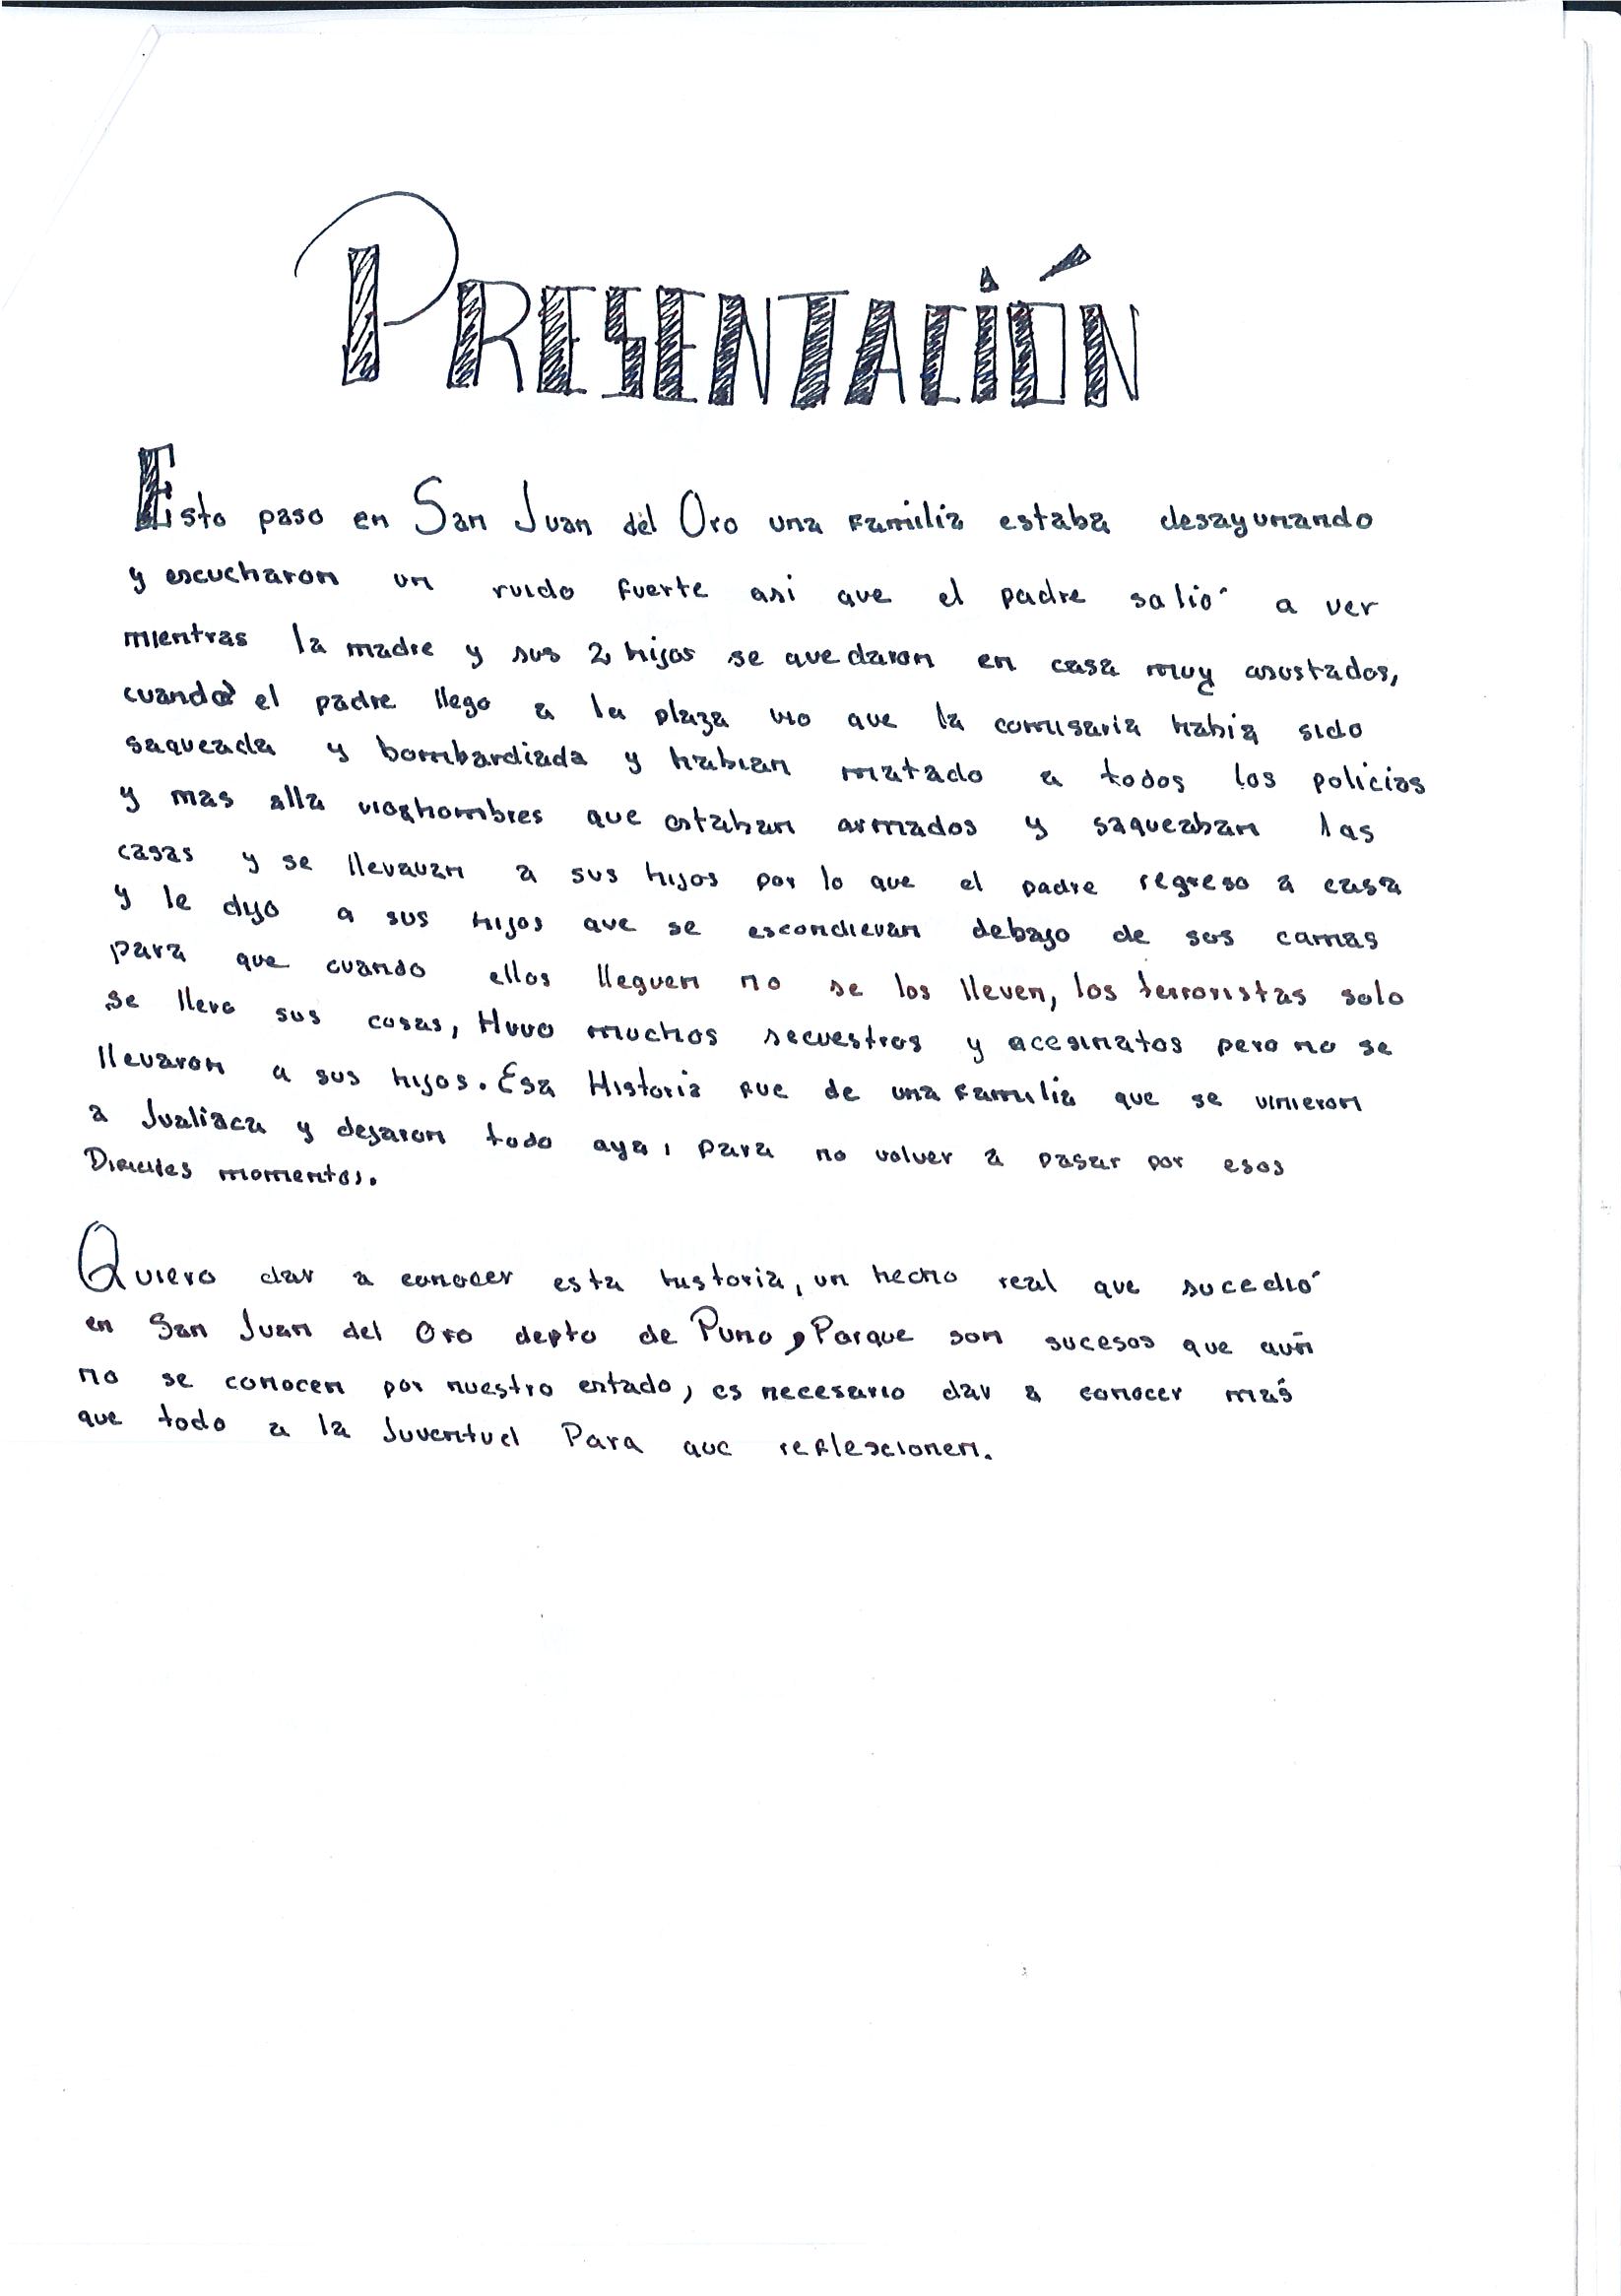 PRESENTACIÓN
Esto paso en San Juan del Oro una familia estaba desayunando
y escucharon un ruido fuerte asi que el padre salió a ver
mientras la madre y sus 2 hijos se quedaron en casa muy asustados,
cuando el padre llego a la plaza vio que la comisaria había sido
saqueada y bombardiada y habian matado a todos los policias
y mas alla hombres que estaban armados y saqueaban las
casas y se llevavan a sus hijos por lo que el padre regreso a casa
y le dijo a sus hijos que se escondieran debajo de sus camas
para que cuando ellos lleguen no se los lleven, los terroristas solo
se llevo sus cosas, Huvo muchos secuestros y acesinatos pero no se
llevaron a sus hijos. Esa Historia fue de una familia que se vinieron
a Jualiaca y dejaron todo aya, para no volver a pasar por esos
Dificiles momentos.
Quiero dar a conocer esta historia, un hecho real que sucedió
en San Juan del Oro depto de Puno, Porque son sucesos que aún
no se conocen por nuestro estado, es necesario dar a conocer más
que todo a la Juventud Para que reflexionen.